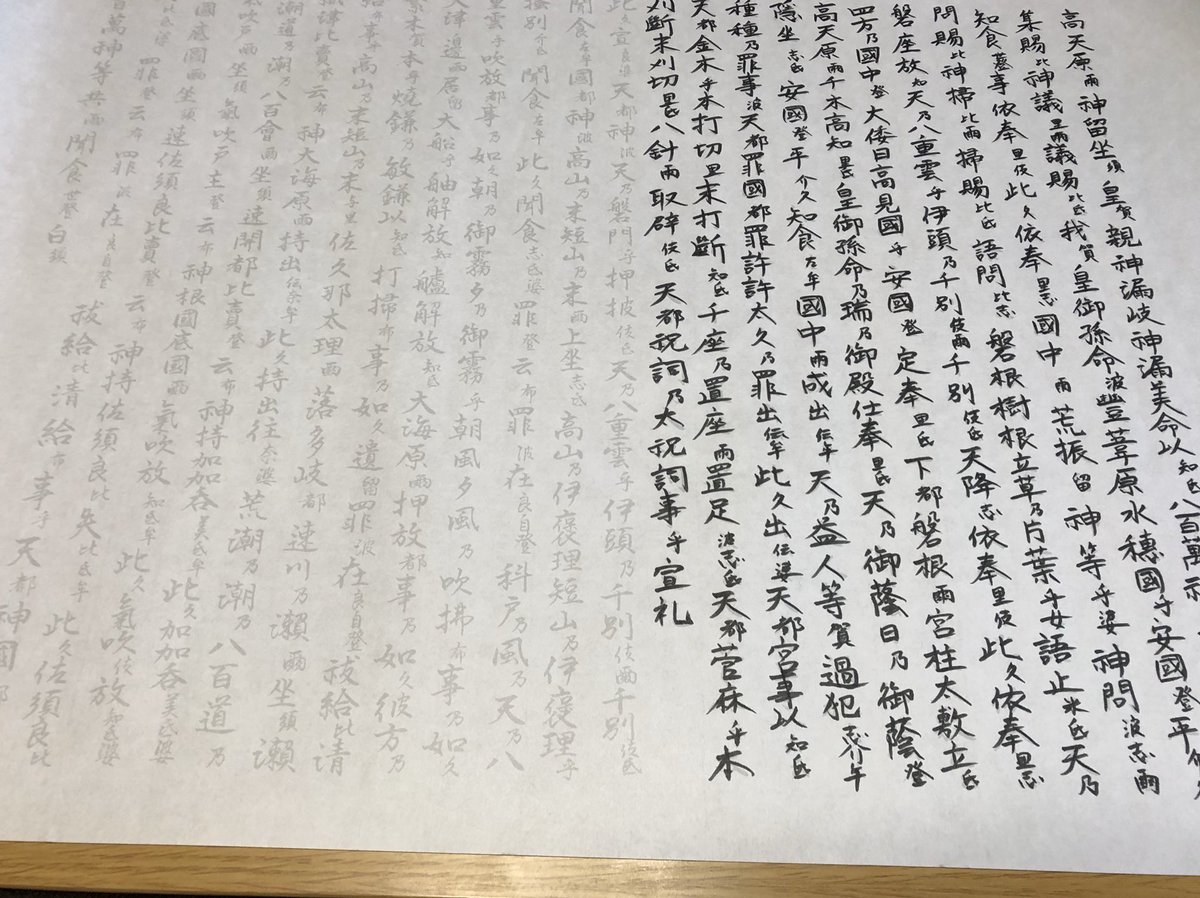 高天原爾神留坐須皇賀親神漏岐神漏美命以知氐八百萬神
集賜比神議里爾議賜比氐我賀皇御孫命波豊葦原水穗國乎安國登平介久
知食登事依奉里伎此久依奉里志國中爾荒振留神等乎婆神問波志爾
問賜比神掃比爾掃賜比氐語問比志磐根樹根立草乃片葉乎母語止米氐天乃
磐座放知天乃八重雲乎伊頭乃千別伎爾千別伎氐天降志依奉里伎此久依奉里志
四方乃國中登大倭日高見國乎安國登定奉里氐下都磐根爾宮柱太敷立氐
高天原爾千木高知里氐皇御孫命乃瑞乃御殿仕奉里氐天乃御蔭日乃御蔭登
隱坐志氐安國登平介久知食左牟國中爾成出伝牟天乃益人等賀過犯志介牟
種種乃罪事波天都罪國都罪許許太久乃罪出伝牟此久出伝婆天都宮事以知氐
天都金木乎本打切里末打斷知氐千座乃置座爾置足波志氐天都菅麻乎本
刈斷末刈切里氐八針爾取辟伎氐天都祝詞乃太祝詞事乎宣礼
此久宣良婆天都神波天乃磐門乎押披伎氐天乃八重雲乎伊頭乃千別伎爾千別伎氐
聞食左牟國都神波高山乃末短山乃末爾上坐志氐高山乃伊褒理短山乃伊褒理乎
搔別氐聞食左牟此久聞食志氐婆罪登云布罪波在良自登科戶乃風乃天乃八
重雲乎吹放都事乃如久朝乃御霧夕乃御霧乎朝風夕風乃吹拂布事乃如久
大津邊爾居留大船乎舳解放知艫解放知氐大海原爾押放都事乃如久彼方乃
繁木賀本乎燒鎌乃敏鎌以知氐打掃布事乃如久遺留罪波在良自登祓給比清
給布事乎高山乃末短山乃末与里佐久那太理爾落多岐都速川乃瀨爾坐須瀨
織津比賣登云布神大海原爾持出伝奈牟此久持出往奈婆荒潮乃潮乃八百道乃
潮道乃潮乃八百會爾坐須速開都比賣登云布神持加加呑美氐牟此久加加呑美氐婆
氣吹戶爾坐須氣吹戶主登云布神根國底國爾氣吹放知氐牟此久氣吹放知氐婆
國底國爾坐須速佐須良比賣登云布神持佐須良比失比氐牟此久佐須良比
比氐婆罪登云布罪波在良自登祓給比清給布事乎天都神國都
百萬神等共爾聞食登白須